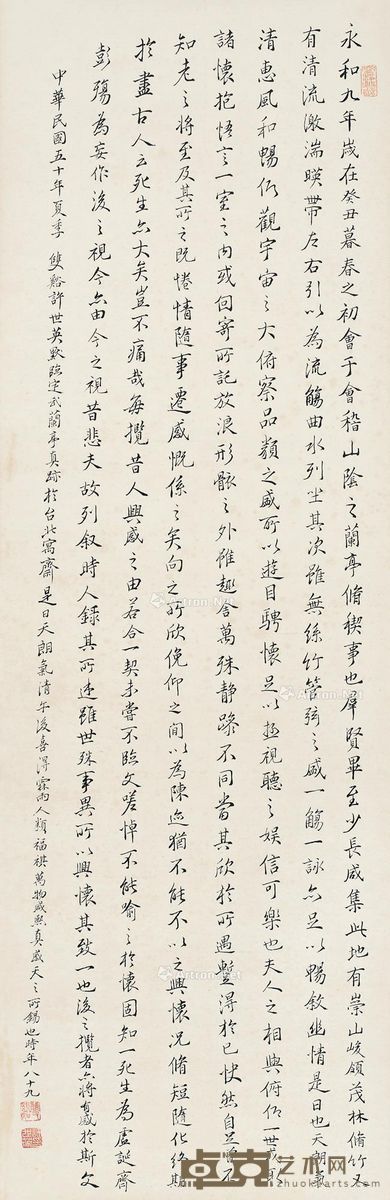 永和九年歲在癸丑暮春之初會于會稽山陰之蘭亭脩稧事也羣賢畢至少長咸集此地有崇山峻領茂林脩竹又
有清流激湍暎帶左右引以為流觴曲水列坐其次雖無絲竹管弦之盛一觴一詠亦足以暢敘幽情是日也天朗氣
清惠風和暢仰觀宇宙之大俯察品類之盛所以遊目騁懷足以極視聽之娛信可樂也夫人之相與俯仰一世或取
諸懷抱悟言一室之內或因寄所託放浪形骸之外雖趣舍萬殊靜躁不同當其欣於所遇暫得於己快然自足曾不
知老之將至及其所之既惓情隨事遷感慨係之矣向之所欣俛仰之間以為陳迹猶不能不以之興懷況脩短隨化終期
於盡古人云死生亦大矣豈不痛哉每攬昔人興感之由若合一契未嘗不臨文嗟悼不能喻之於懷固知一死生為虛誕齊
彭殤為妄作後之視今亦由今之視昔悲夫故列敘時人錄其所述雖世殊事異所以興懷其致一也後之攬者亦將有感於斯文
中華民國五十年夏季 雙谿許世英敬臨定武蘭亭真跡於台北寓齋是日天朗氣清午後喜得霖雨人類福祉萬物咸熙真感天之所錫也時年八十九
卓克艺术网